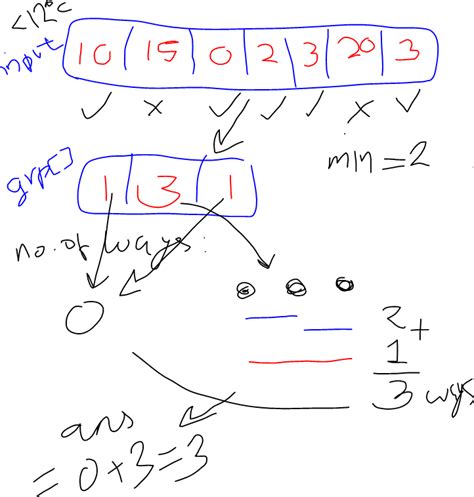 <12°C
input 10 15 0 2 3 20 3
✓ × ✓ ✓ ✓ × ✓
min = 2
grp[] 1 3 1
no. of ways:
0
2 +
1
3 ways
ans
= 0+3=3